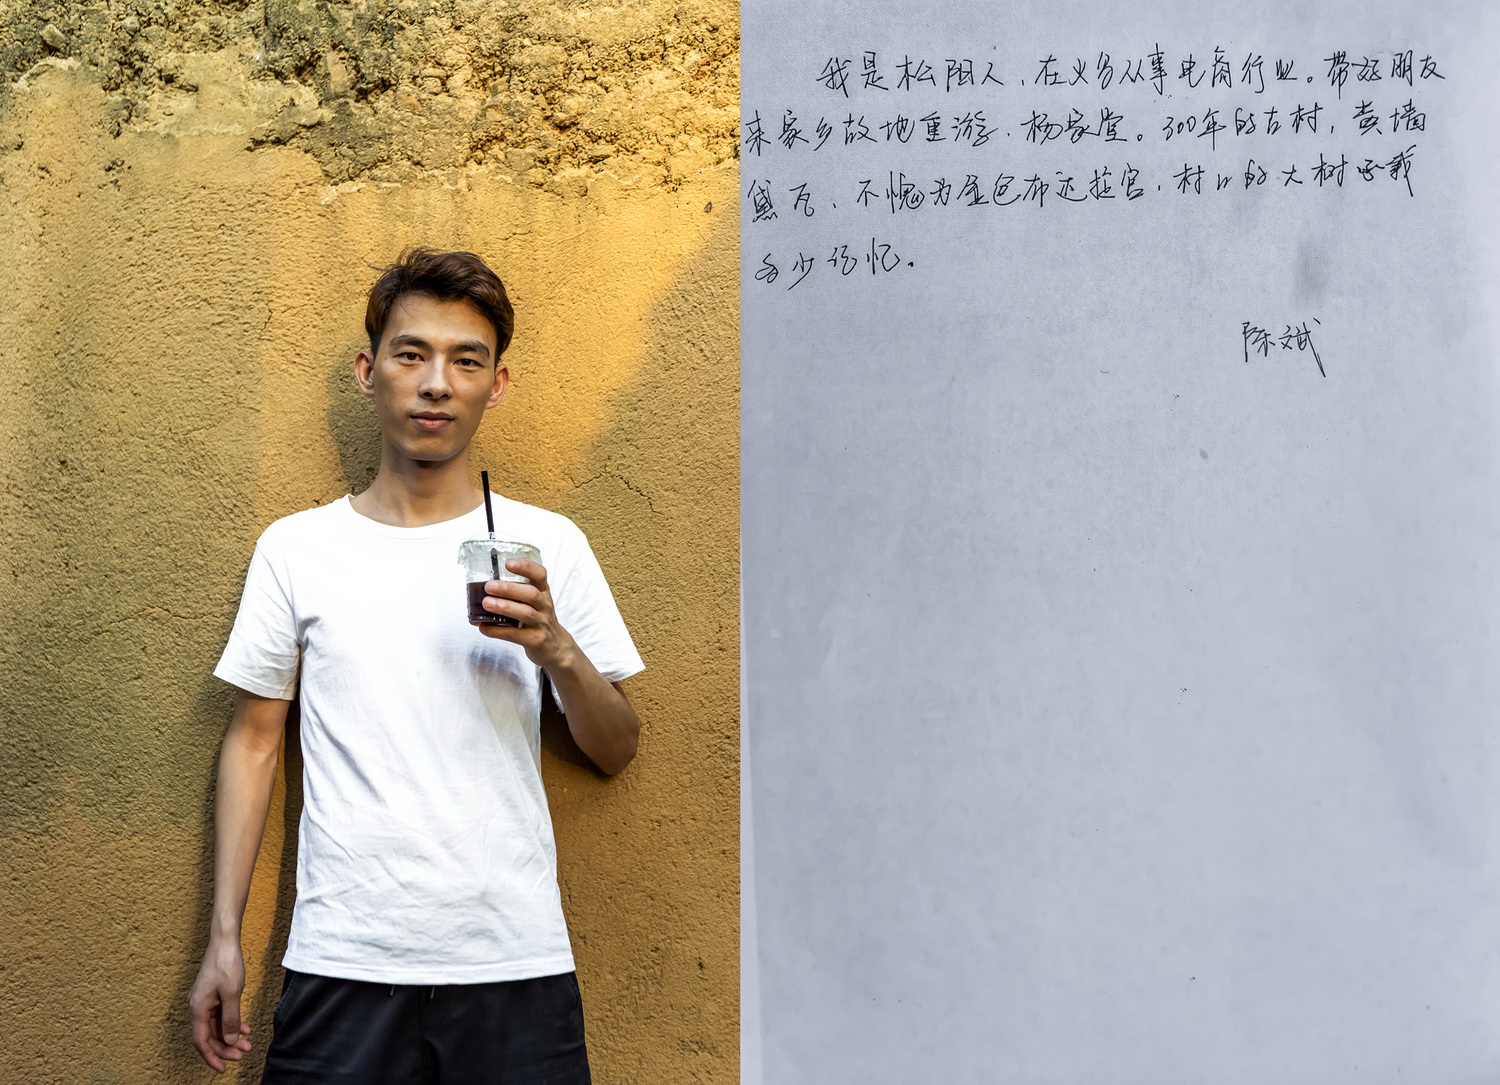 我是松阳人，在义乌从事电商行业。带远朋友
来家乡故地重游，杨家堂。300年的古村，黄墙
黛瓦，不愧为金色布达拉宫，村口的大树承载
多少记忆。
陈斌